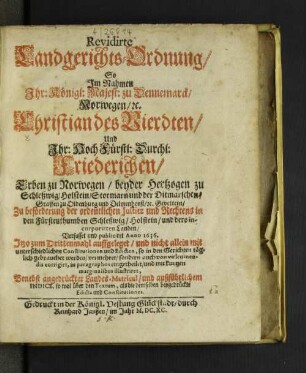 Revidirte
Landgerichts-Ordnung/
So
Im Nahmen
Ihr: Königl: Majest: zu Dennemarck/
Norwegen/ &c.
Christian des Vierdten/
Und
Ihr: Hoch Fürstl: Durchl:
Friederichen/
Erben zu Norwegen/ beyder Hertzogen zu
Schleßwig/ Holstein/ Stormarn und der Ditmarschen/
Graffen zu Oldenburg und Delmenhorst/ &c.
Zu beforderung der ordentlichen Justice und Rechtens in
den Fürstenthumben Schleßwig/ Holstein/ und dero in-
corporirten Landen/
Verfasset und publiciret Anno 1636.
Itzo zum Drittenmahl auffgeleget/ und nicht allein mit
unterschiedlichen Constitutionen und Edicten, so in den Gerichten täg-
lich gebrauchet werden/ vermehret/ sondern auch von vielen
corrigiret, in paragraphos eingetheilet, und mit kurtzen
marginalien illustriret,
Benebst angedruckter Landes-Matricul/ und außführlichem
INDICE, so wol über den
Edicta und Constitutiones.
Gedruckt in der Königl. Vestung Glückstadt/ durch
Reinhard Janssen/ im Jahr M. DC. XC.